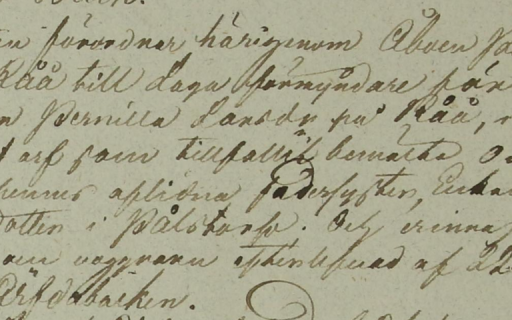 förordnar härigenom Åboen På
Råå till Laga förmyndare för
Pernilla Larsdr på Råå,
arf som tillfallit bemälta
hennes aflidna fadersyster, Enkan
dotter i Pålstorp. Och erinras
noggrann efterlefnad af 22
Ärfdabalken.